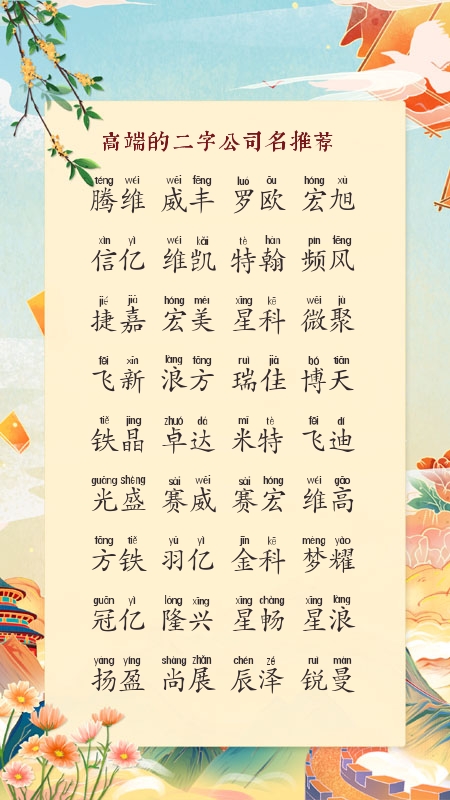 高端的二字公司名推荐
téng wéi wēi fēng luó ōu hóng xù
腾维 威丰 罗欧 宏旭
xìn yì wéi kǎi tè hàn pín fēng
信亿 维凯 特翰 频风
jié jiā hóng měi xīng kē wēi jù
捷嘉 宏美 星科 微聚
fēi xīn làng fāng ruì jiā bó tiān
飞新 浪方 瑞佳 博天
tiě jīng zhuó dá mǐ tè fēi dí
铁晶 卓达 米特 飞迪
guāng shèng sài wēi sài hóng wéi gāo
光盛 赛威 赛宏 维高
fāng tiě yǔ yì jīn kē mèng yào
方铁 羽亿 金科 梦耀
guān yì lóng xīng xīng chàng xīng làng
冠亿 隆兴 星畅 星浪
yáng yíng shàng zhǎn chén zé ruì màn
扬盈 尚展 辰泽 锐曼